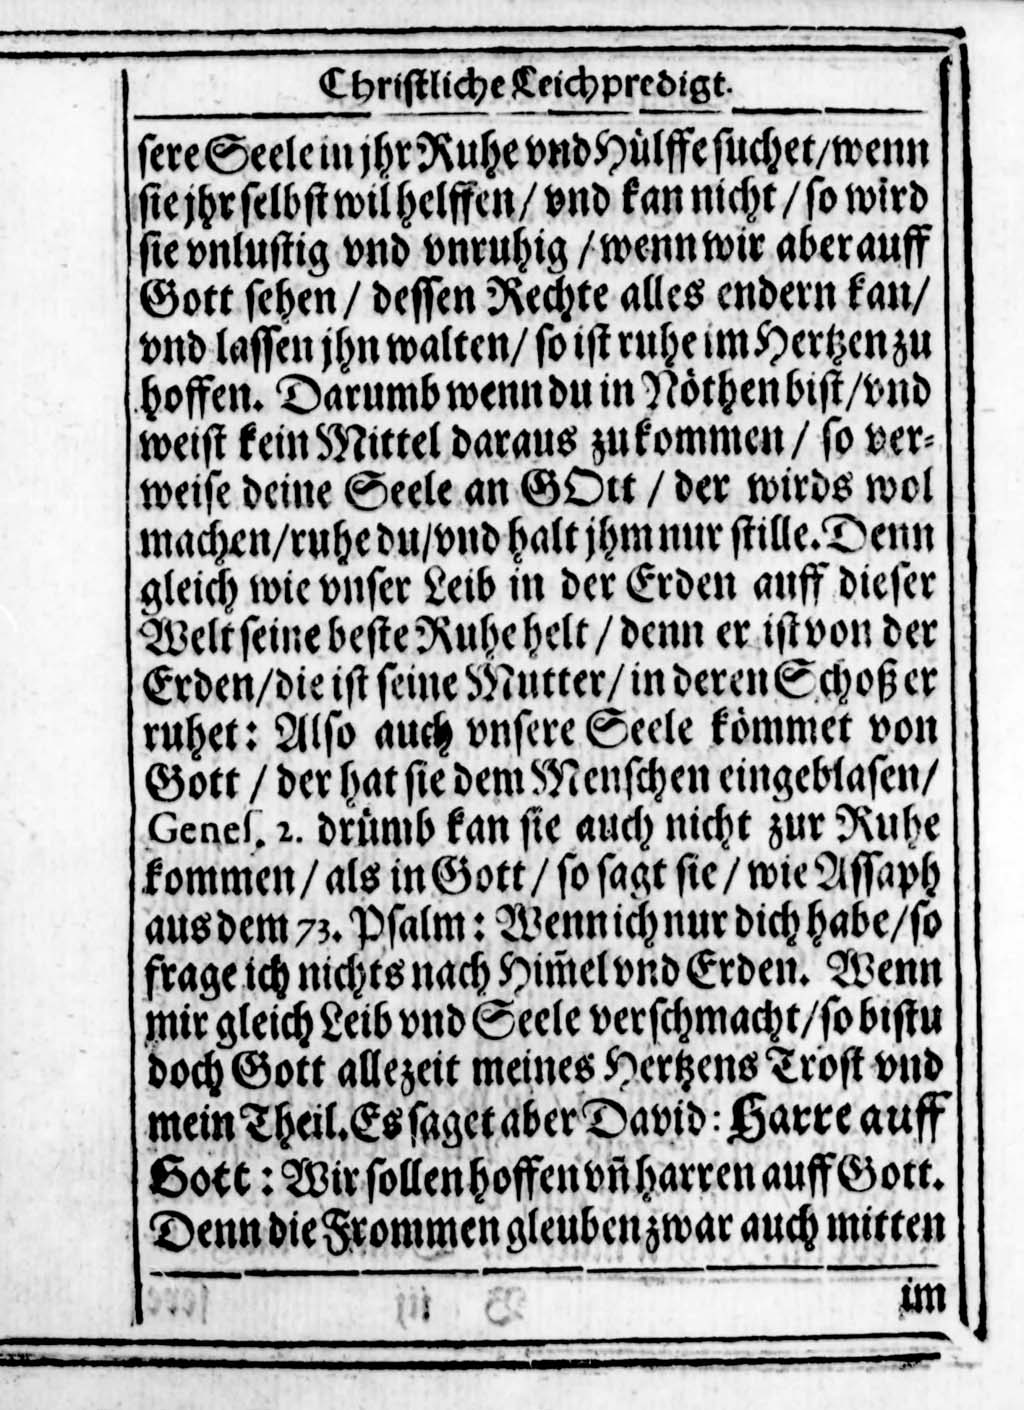 Christliche Leichpredigt.
sere Seele in jhr Ruhe vnd Hülffe suchet/wenn
sie jhr selbst wil helffen/ vnd kan nicht / so wird
sie vnlustig vnd vnruhig / wenn wir aber auff
Gott sehen / dessen Rechte alles endern kan/
vnd lassen jhn walten/ so ist ruhe im Hertzen zu
hoffen. Darumb wenn du in Nöthen bist/vnd
weist kein Mittel daraus zukommen / so ver⸗
weise deine Seele an GOtt / der wirds wol
machen/ruhe du/vnd halt jhm nur stille. Denn
gleich wie vnser Leib in der Erden auff dieser
Welt seine beste Ruhe helt / denn er ist von der
Erden/die ist seine Mutter/ in deren Schoß er
ruhet: Also auch vnsere Seele kömmet von
Gott / der hat sie dem Menschen eingeblasen/
Genes. 2. drümb kan sie auch nicht zur Ruhe
kommen/ als in Gott/ so sagt sie/ wie Assaph
aus dem 73. Psalm: Wenn ich nur dich habe/so
frage ich nichts nach Him̃el vnd Erden. Wenn
mir gleich Leib vnd Seele verschmacht/so bistu
doch Gott allezeit meines Hertzens Trost vnd
mein Theil. Es saget aber David: Harre auff
Gott: Wir sollen hoffen vñ harren auff Gott.
Denn die Frommen gleuben zwar auch mitten
im